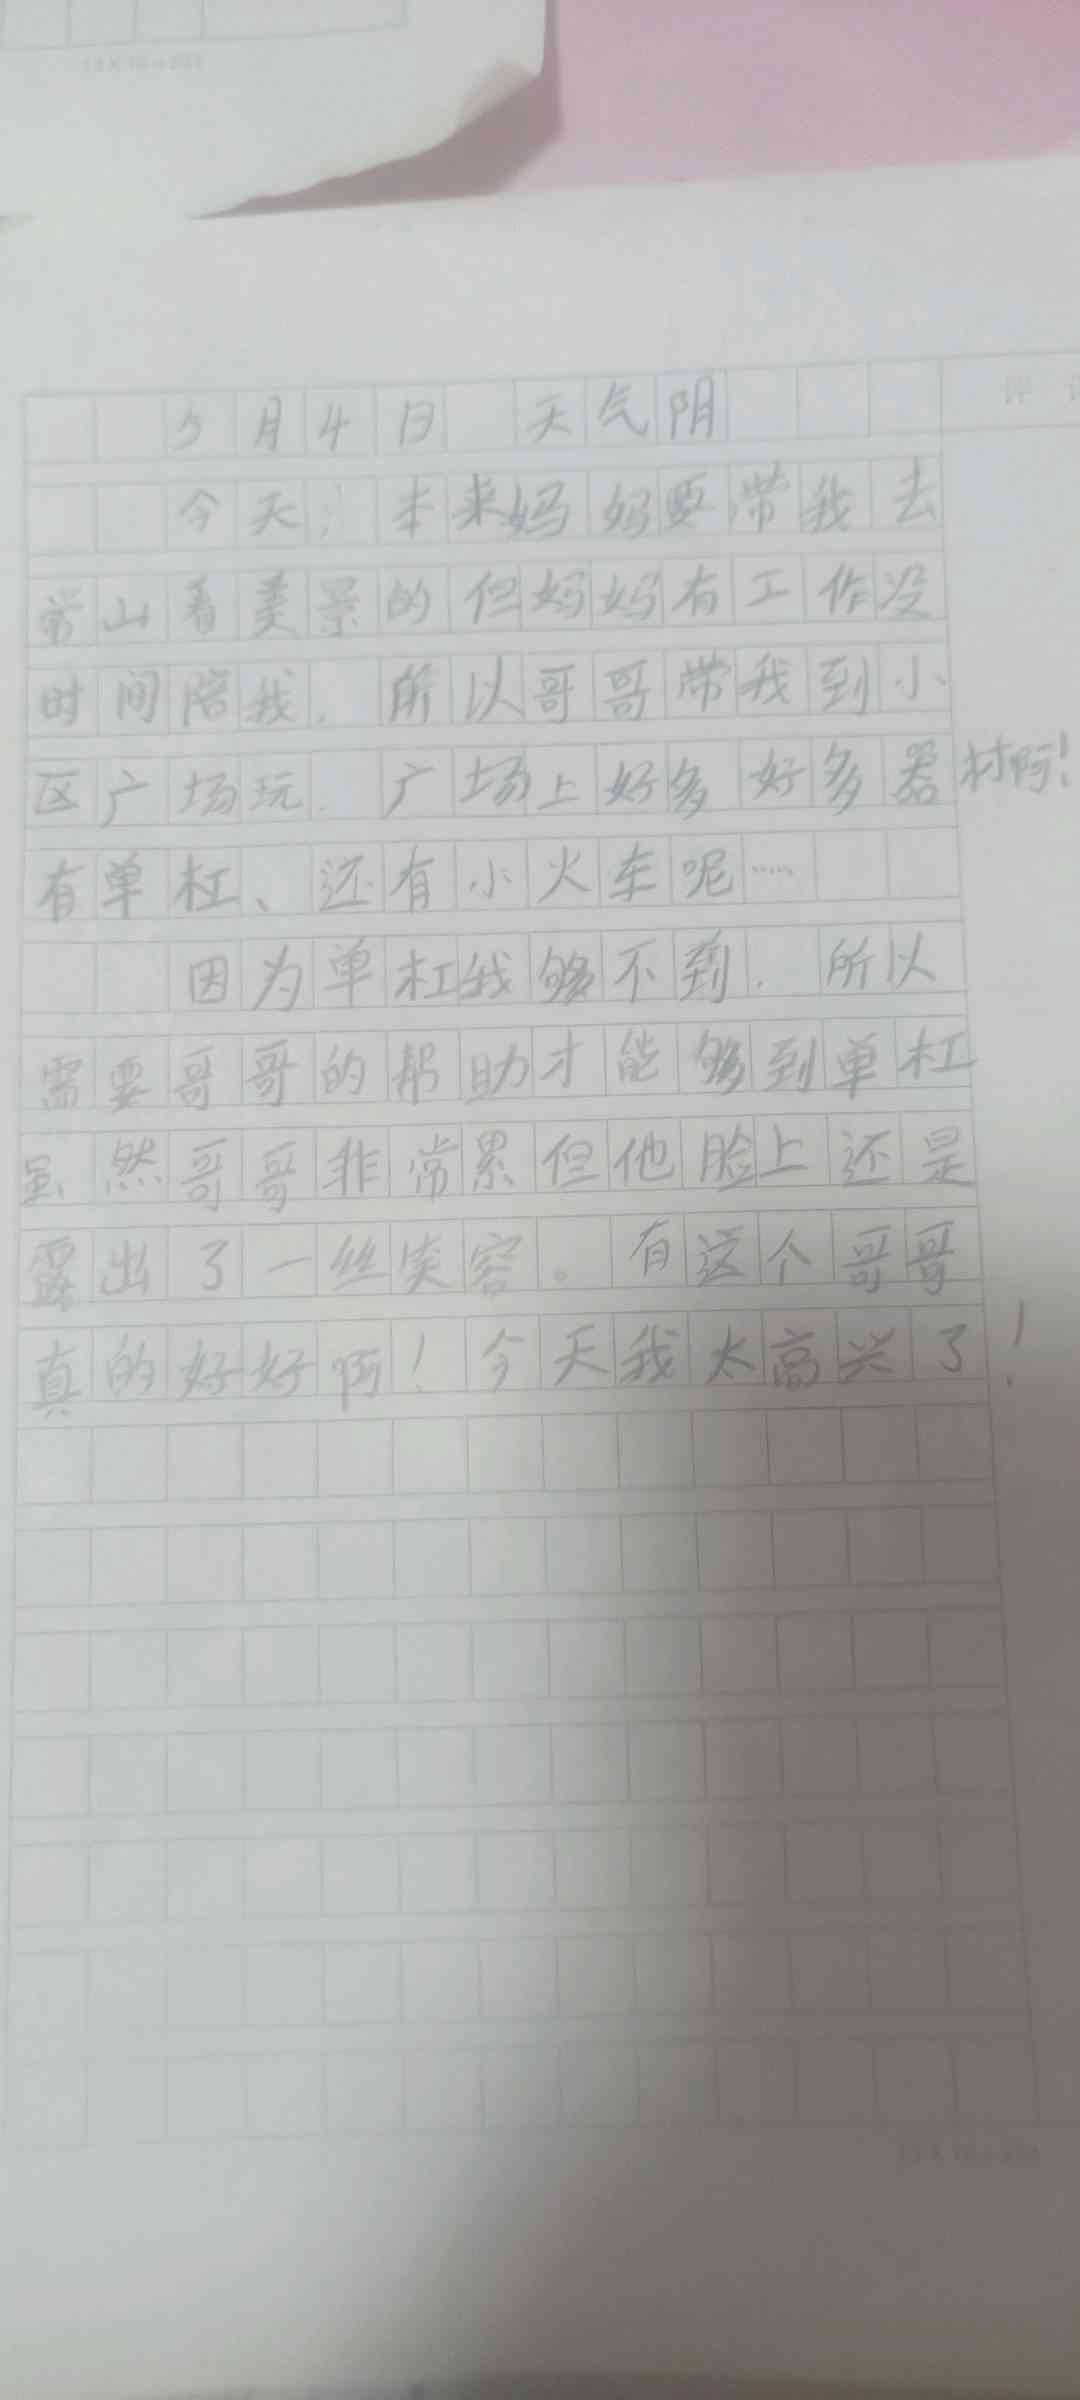 5月4日 天气阴
今天，本来妈妈要带我去
常山看美景的但妈妈有工作没
时间陪我，所以哥哥带我到小
区广场玩．广场上好多好多器材啊！
有单杠、还有小火车呢……
因为单杠我够不到，所以
需要哥哥的帮助才能够到单杠
虽然哥哥非常累但他脸上还是
露出了一丝笑容。有这个哥哥
真的好好啊！今天我太高兴了！